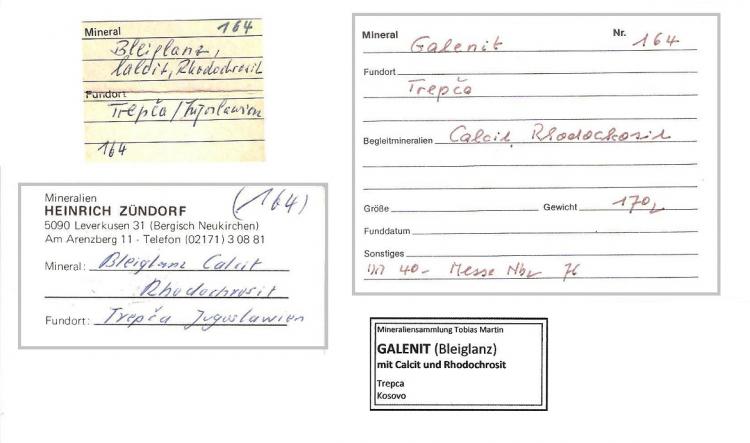 Mineral 164
Bleiglanz,
Calcit, Rhodochrosit
Fundort
Trepča/Jugoslawien
164
Mineral Galenit Nr. 164
Fundort
Trepča
Begleitmineralien Calcit, Rhodochrosit
Größe Gewicht 170,-
Funddatum
Sonstiges
DM 40- Messe Nbg 76
Mineralien (164)
HEINRICH ZÜNDORF
5090 Leverkusen 31 (Bergisch Neukirchen)
Am Arenzberg 11 · Telefon (02171) 3 08 81
Mineral: Bleiglanz Calcit
Rhodochrosit
Fundort: Trepča Jugoslawien
Mineraliensammlung Tobias Martin
GALENIT (Bleiglanz)
mit Calcit und Rhodochrosit
Trepca
Kosovo